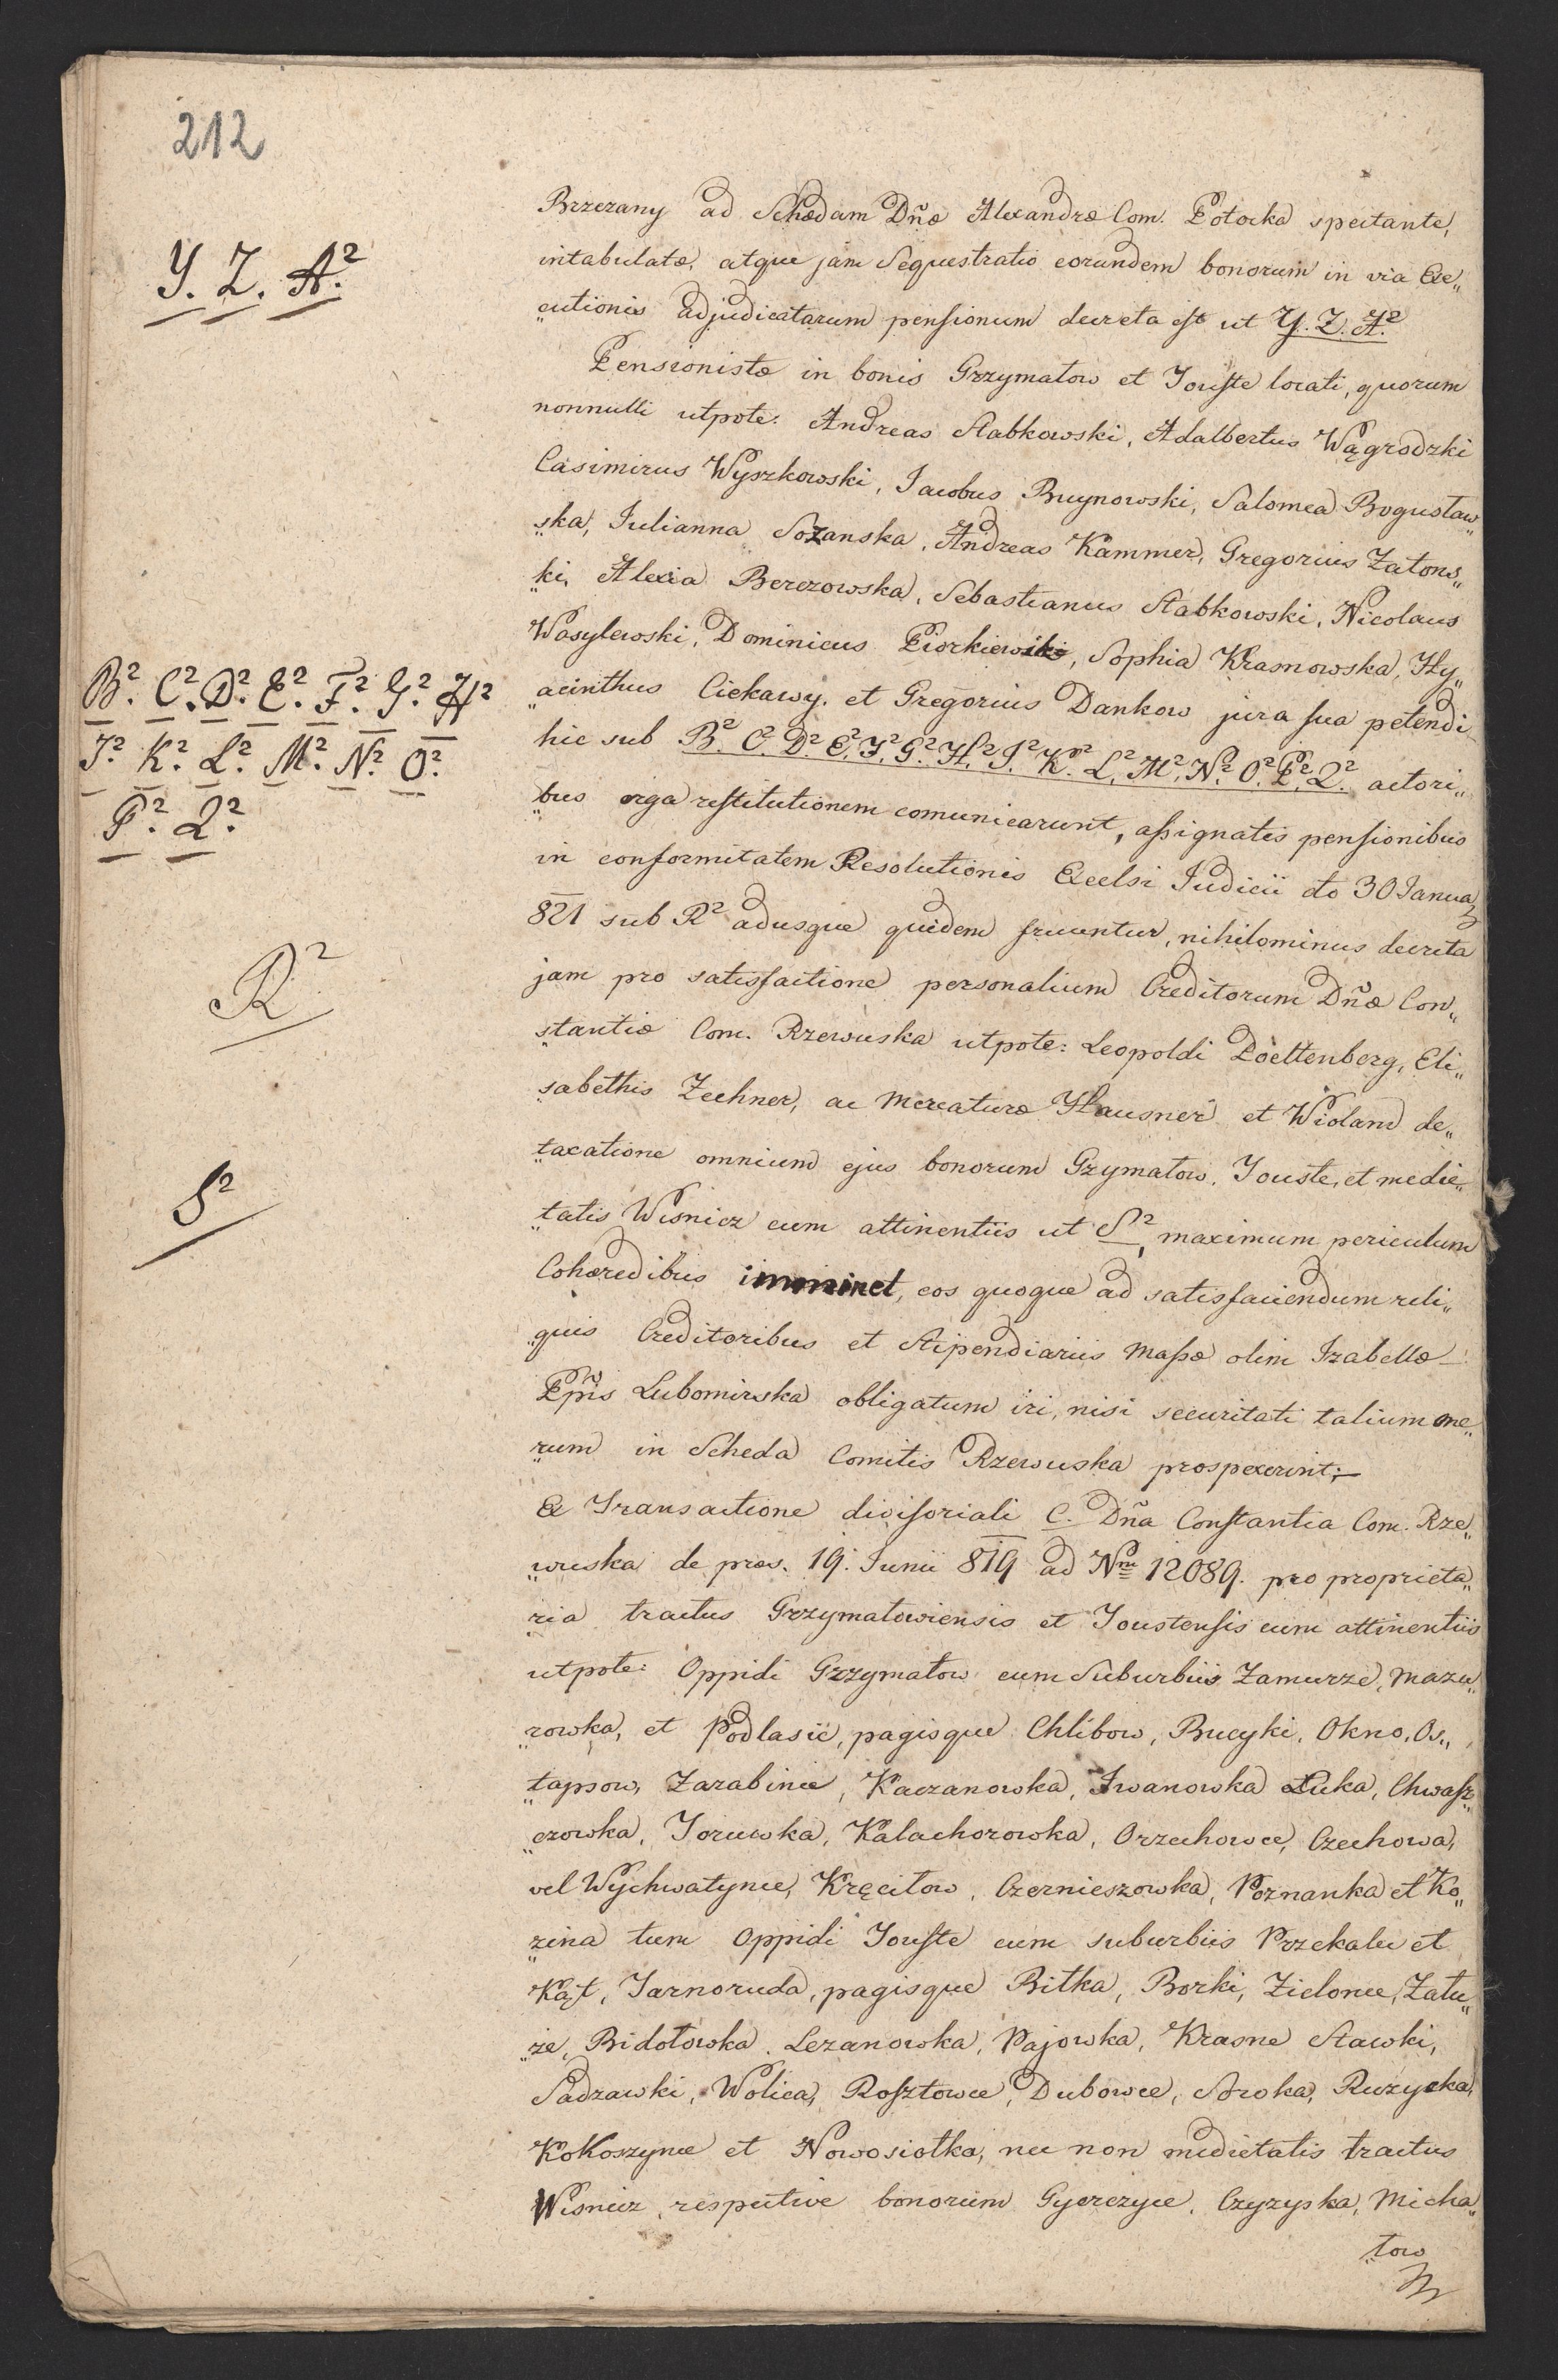 212
Brzezany ad Schedam Dñæ Alexandræ Com. Potocka spectante,
intabulatæ, atque jam Sequestratio eorundem bonorum in via Exe„
„cutionis adjudicatarum pensionum decreta est ut Y. Z. A².
Y. Z. A².
Pensionistæ in bonis Grzymałow et Touste locati, quorum
nonnulli utpote: Andreas Stabkowski, Adalbertus Wągrodzki
Casimirus Wyszkowski, Jacobus Buynowski, Salomea Bogusław„
„ska, Julianna Sozanska, Andreas Kammer, Gregorius Zatons„
„ki, Alexia Berezowska, Sebastianus Stabkowski, Nicolaus
Wasylewski, Dominicus Piorkiewski, Sophia Krasnowska, Hy„
„acinthus Ciekawy, et Gregorius Dankow jura sua petendi
hic sub B². C². D². E². F². G². H². I². K². L². M². N². O². P². Q². actori„
B². C². D². E². F². G². H²
I². K². L². M². N². O².
P². Q².
„bus erga restitutionem comunicarunt, assignatis pensionibus
in conformitatem Resolutionis Excelsi Judicii dto 30 Janua
821 sub R² adusque quidem fruuntur, nihilominus decreta
R²
jam pro satisfactione personalium Creditorum Dñæ Con„
„stantiæ Com. Rzewuska utpote: Leopoldi Poettenberg, Eli„
„sabethis Zechner, ac Mercaturæ Hausner et Violand de„
„taxatione omnium ejus bonorum Grzymałow, Touste, et medie„
„tatis Wisnicz cum attinentiis ut S², maximum periculum
S²
Cohæredibus imminet, eos quoque ad satisfaciendum reli„
„quis Creditoribus et Stipendiariis Massæ olim Izabellæ
Ppis Lubomirska obligatum iri, nisi securitati talium one„
„rum in Scheda Comitis Rzewuska prospexerint;
Ex Transactione divisoriali C. Dña Constantia Com. Rze„
„wuska de præs. 19. Junii 819 ad Nm 12089. pro proprieta„
„ria tractus Grzymałowiensis et Toustensis cum attinentiis
utpote: Oppidi Grzymałow cum Suburbiis Zamurze, Mazu„
„rowka, et Podlasie, pagisque Chlibow, Bucyki, Okno, Os„
„tapsow, Zarabince, Kaczanowka, Iwanowka Łuka, Chwasz„
„czowka, Torowka, Kalachorowka, Orzechowce, Czechowa,
vel Wychwatynce, Kręcitow, Czernieszowka, Poznanka et Ko„
„zina tum Oppidi Touste cum suburbiis Przekalec et
Kąt, Tarnoruda, pagisque Bitka, Borki, Zielone, Zału„
„że, Bidołowka, Lezanowka, Pajowka, Krasne Stawki,
Sadzawki, Wolica, Rosztowce, Dubowce, Soroka, Ruzycka,
Kokoszynce et Nowosiołka, nec non medietatis tractus
Wisnicz respective bonorum Gyerczyce, Czyzyska, Micha„
„łow